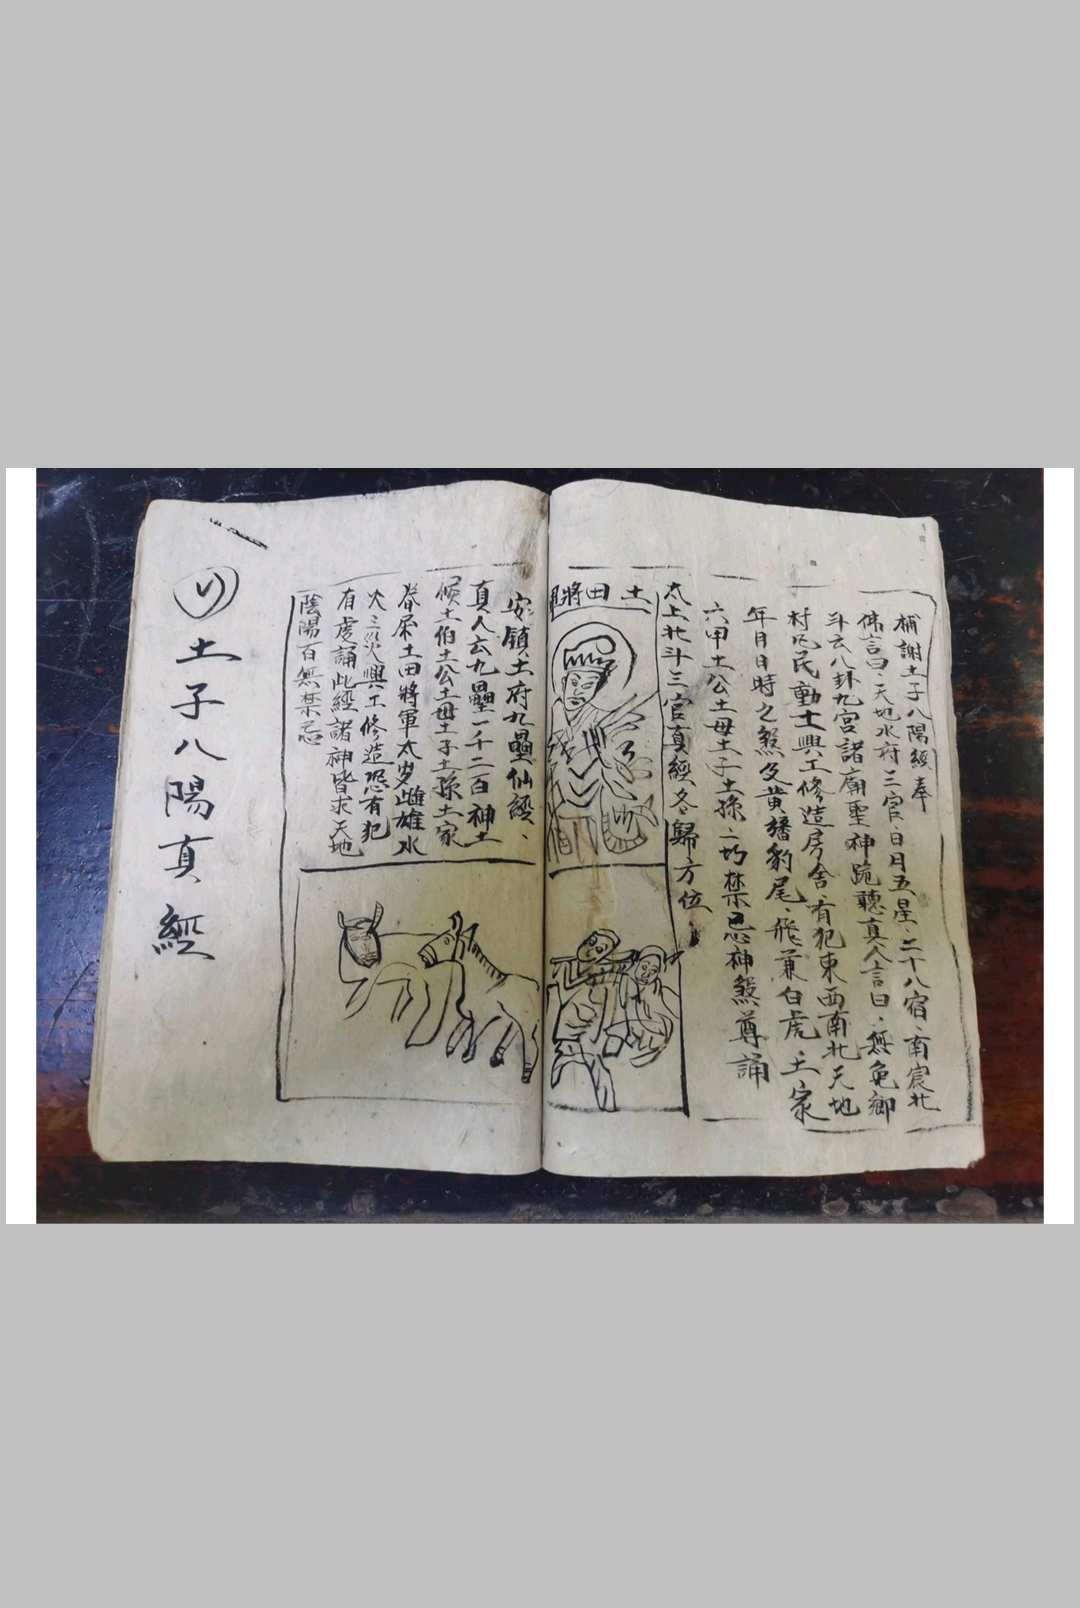 補謝土子八陽經奉
佛言曰天地水府三官日月五星二十八宿南宸北
斗云八卦九宮諸廟聖神跪聽真人言曰無免鄉
村凡民動土興工修造房舍有犯東西南北天地
年月日時之煞及黃旛豹尾飛兼白虎土家
六甲土公土母土子土孫一切禁忌神煞尊誦
太上北斗三官真經各歸方位
土田將軍
安鎮土府九壘仙經
真人云九壘一千二百神土
候土伯土公土母土子土孫土家
眷屬土田將軍太岁雌雄水
火三災興工修造恐有犯
有處誦此經諸神皆求天地
陰陽百無禁忌
土子八陽真經